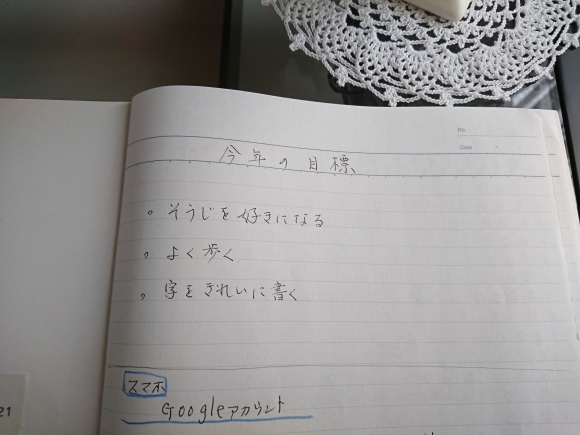 No.
Date
今年の目標
。そうじを好きになる
。よく歩く
。字をきれいに書く
スマホ
Googleアカウント
21